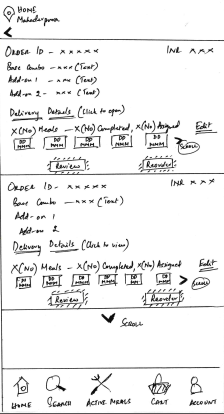 HOME
Mahadevpura
ORDER ID - x x x x x INR x x x
Base Combo - x x x (Text)
Add-on 1 - x x x (Text)
Add-on 2 - x x x (Text)
Delivery Details (Click to open)
X(No) Meals - X(No) Completed, X(No) Assigned Edit
DD MMM DD MMM DD MMM DD MMM DD MMM > SCROLL
Review Reorder
ORDER ID - x x x x x INR x x x
Base Combo - x x x (Text)
Add-on 1
Add-on 2
Delivery Details (Click to view)
X(No) Meals - X(No) Completed, X(No) Assigned Edit
DD MMM DD MMM DD MMM DD MMM DD MMM DD MMM > SCROLL
Review Reorder
SCROLL
HOME SEARCH ACTIVE MEALS CART ACCOUNT